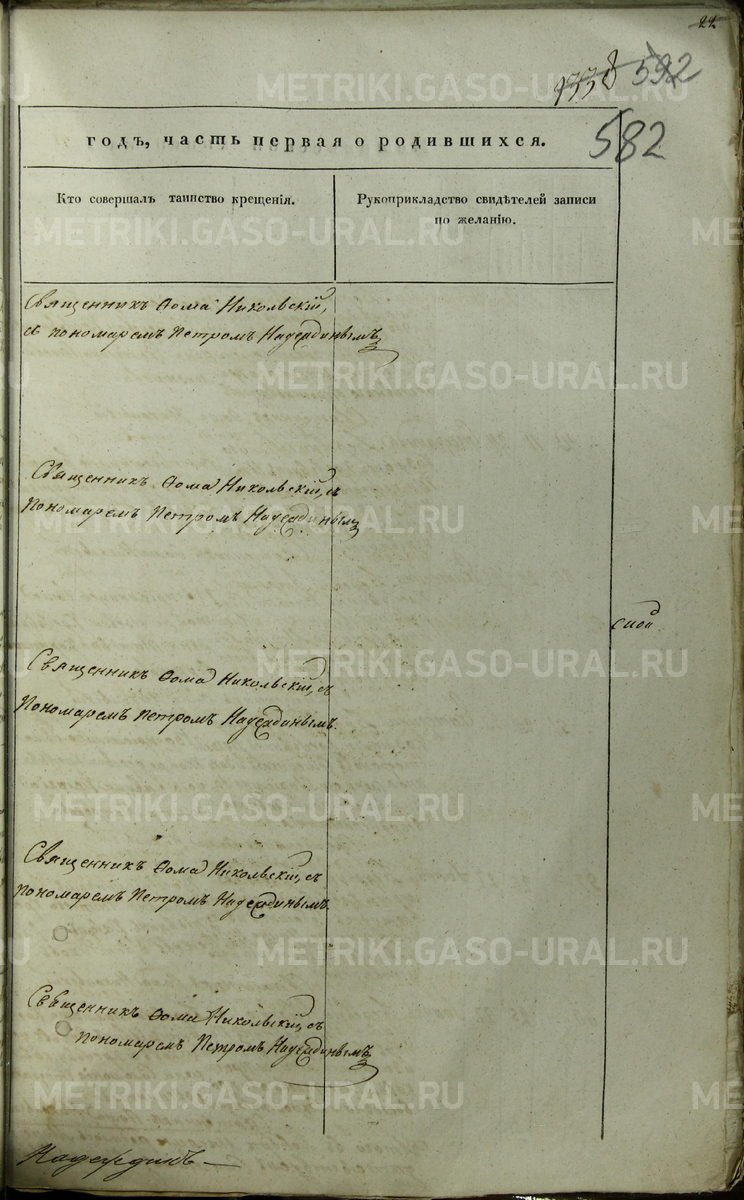 22
592
582
годъ, часть первая о родившихся.
Кто совершалъ таинство крещенія.
Рукоприкладство свидѣтелей записи
по желанію.
Священникъ Ѳома Никольскій,
съ пономаремъ Петромъ Надеждинымъ
Священникъ Ѳома Никольскій, съ
Пономаремъ Петромъ Надеждинымъ
Священникъ Ѳома Никольскій, съ
Пономаремъ Петромъ Надеждинымъ.
Священникъ Ѳома Никольскій, съ
пономаремъ Петромъ Надеждинымъ.
Священникъ Ѳома Никольскій, съ
пономаремъ Петромъ Надеждинымъ
Надеждинъ
METRIKI.GASO-URAL.RU